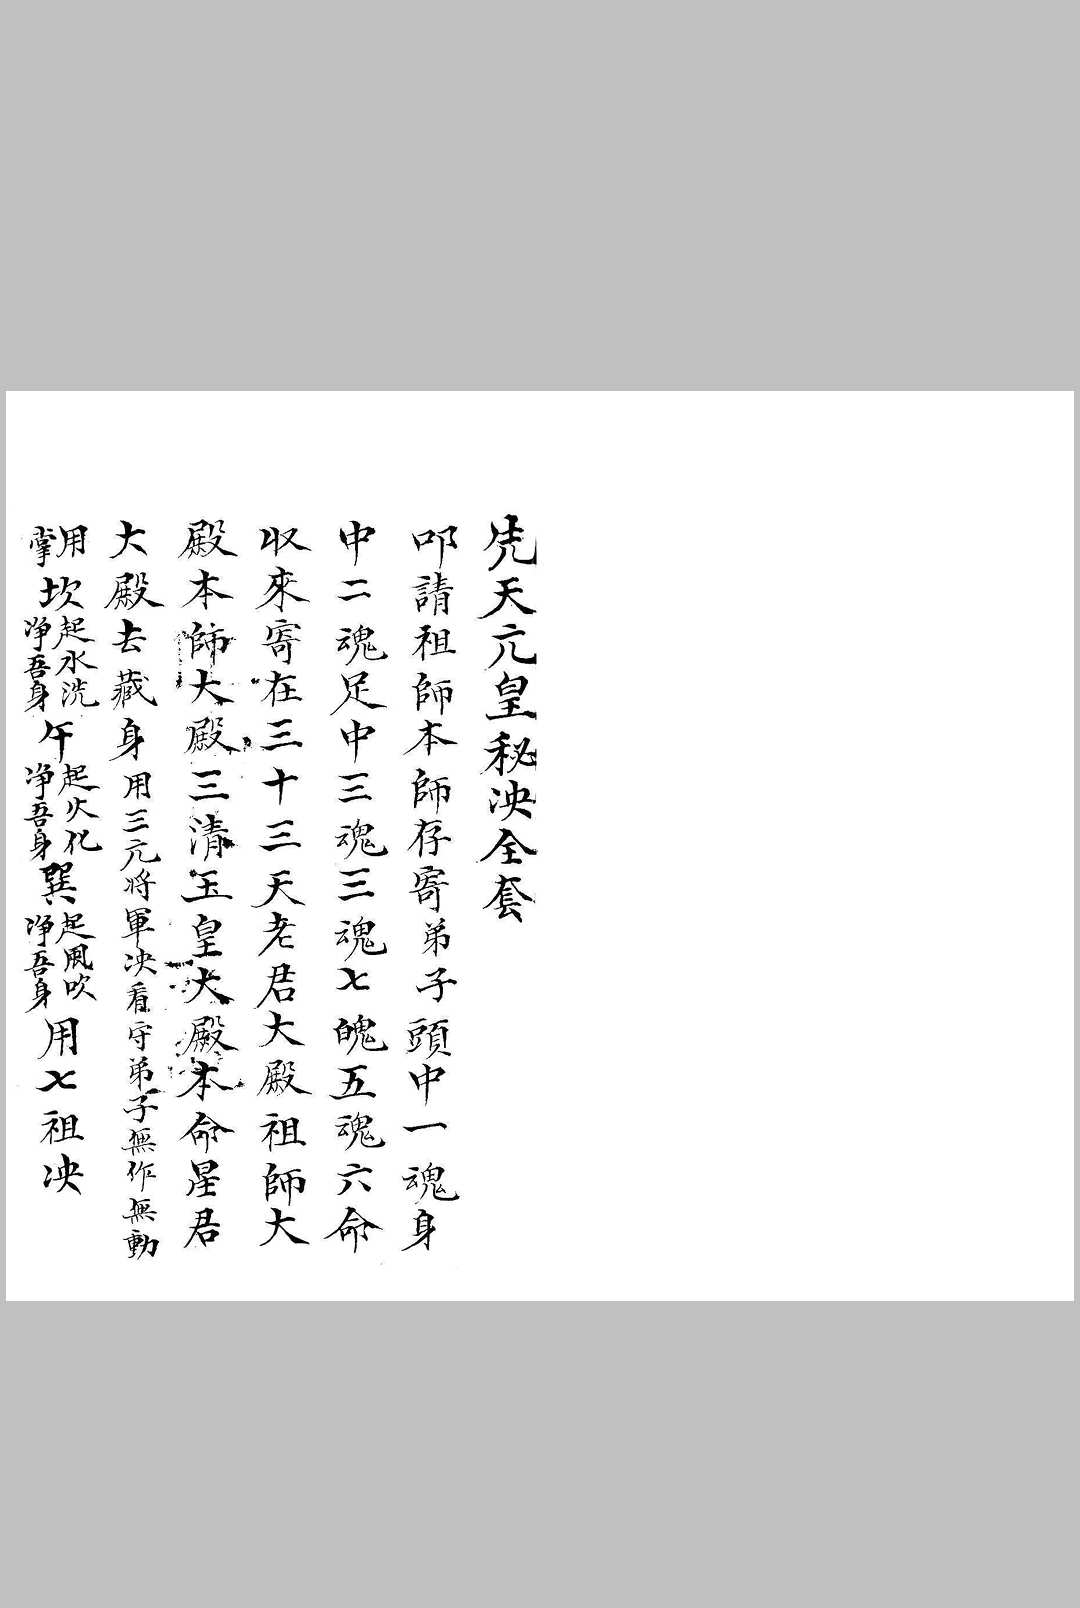 先天元皇秘决全套
叩請祖師本師存寄弟子頭中一魂身
中二魂足中三魂三魂七魄五魂六命
収來寄在三十三天老君大殿祖師大
殿本師大殿三清玉皇大殿本命星君
大殿去藏身用三元將軍决看守弟子無作無動
用掌坎起水洗净吾身午起火化净吾身巽起風吹净吾身用七祖决